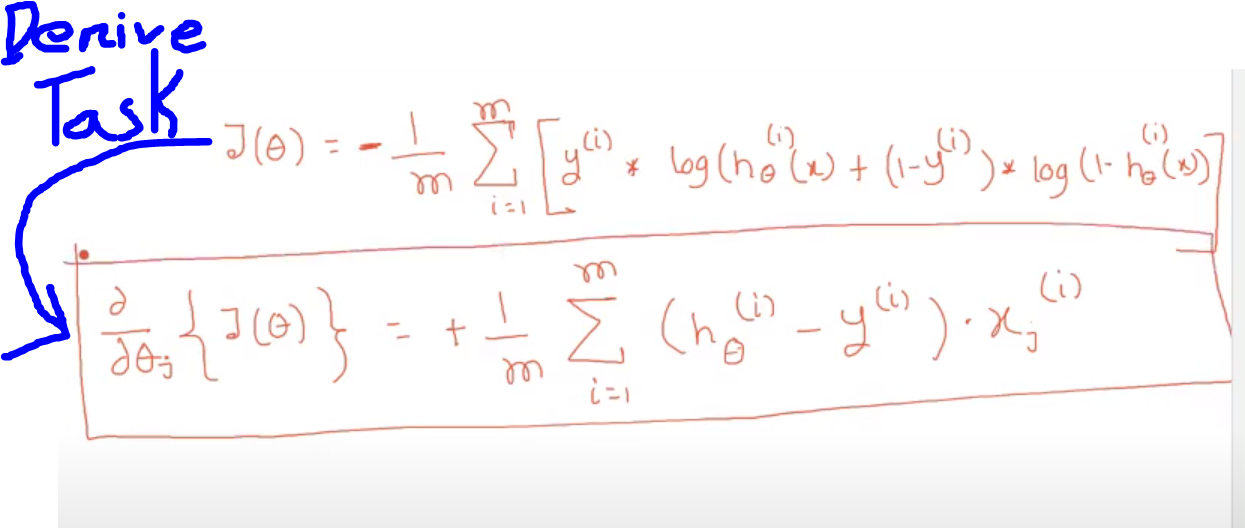 Derive
Task
J(θ) = - 1/m Σ_{i=1}^{m} [ y^{(i)} * log(h_θ^{(i)}(x) + (1-y^{(i)}) * log(1- h_θ^{(i)}(x)) ]
∂/∂θ_j { J(θ) } = + 1/m Σ_{i=1}^{m} (h_θ^{(i)} - y^{(i)}) · x_j^{(i)}